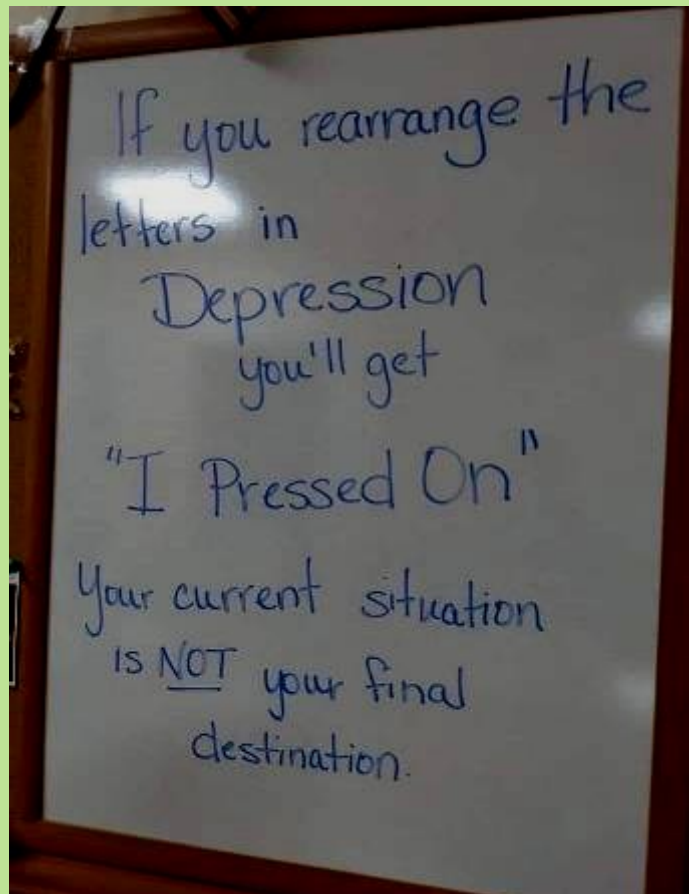 If you rearrange the
letters in
Depression
you'll get
"I Pressed On"
Your current situation
is NOT your final
destination.